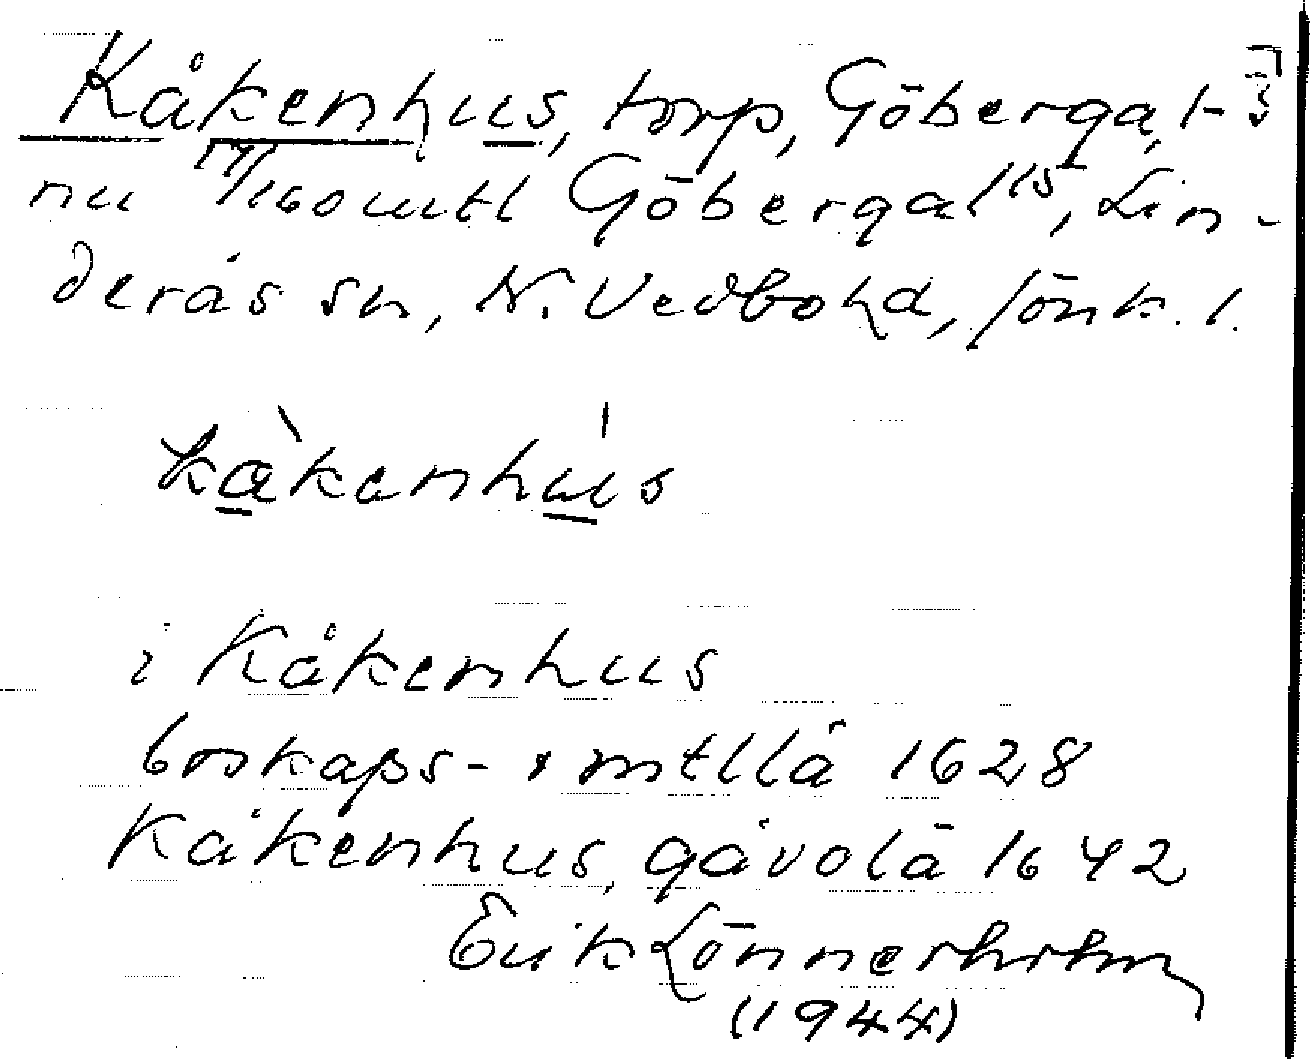 Kåkenhus, torp, Göberga, 1-3
nu 17/160 mtl Göberga 1 15, Lin-
derås sn, N. Vedbo hd, Jönk. l.
kåkenhus
i Kåkenhus
boskaps- o mtllä 1628
Kåkenhus, gåvolä 1642
Erik Lönnerholm
(1944)